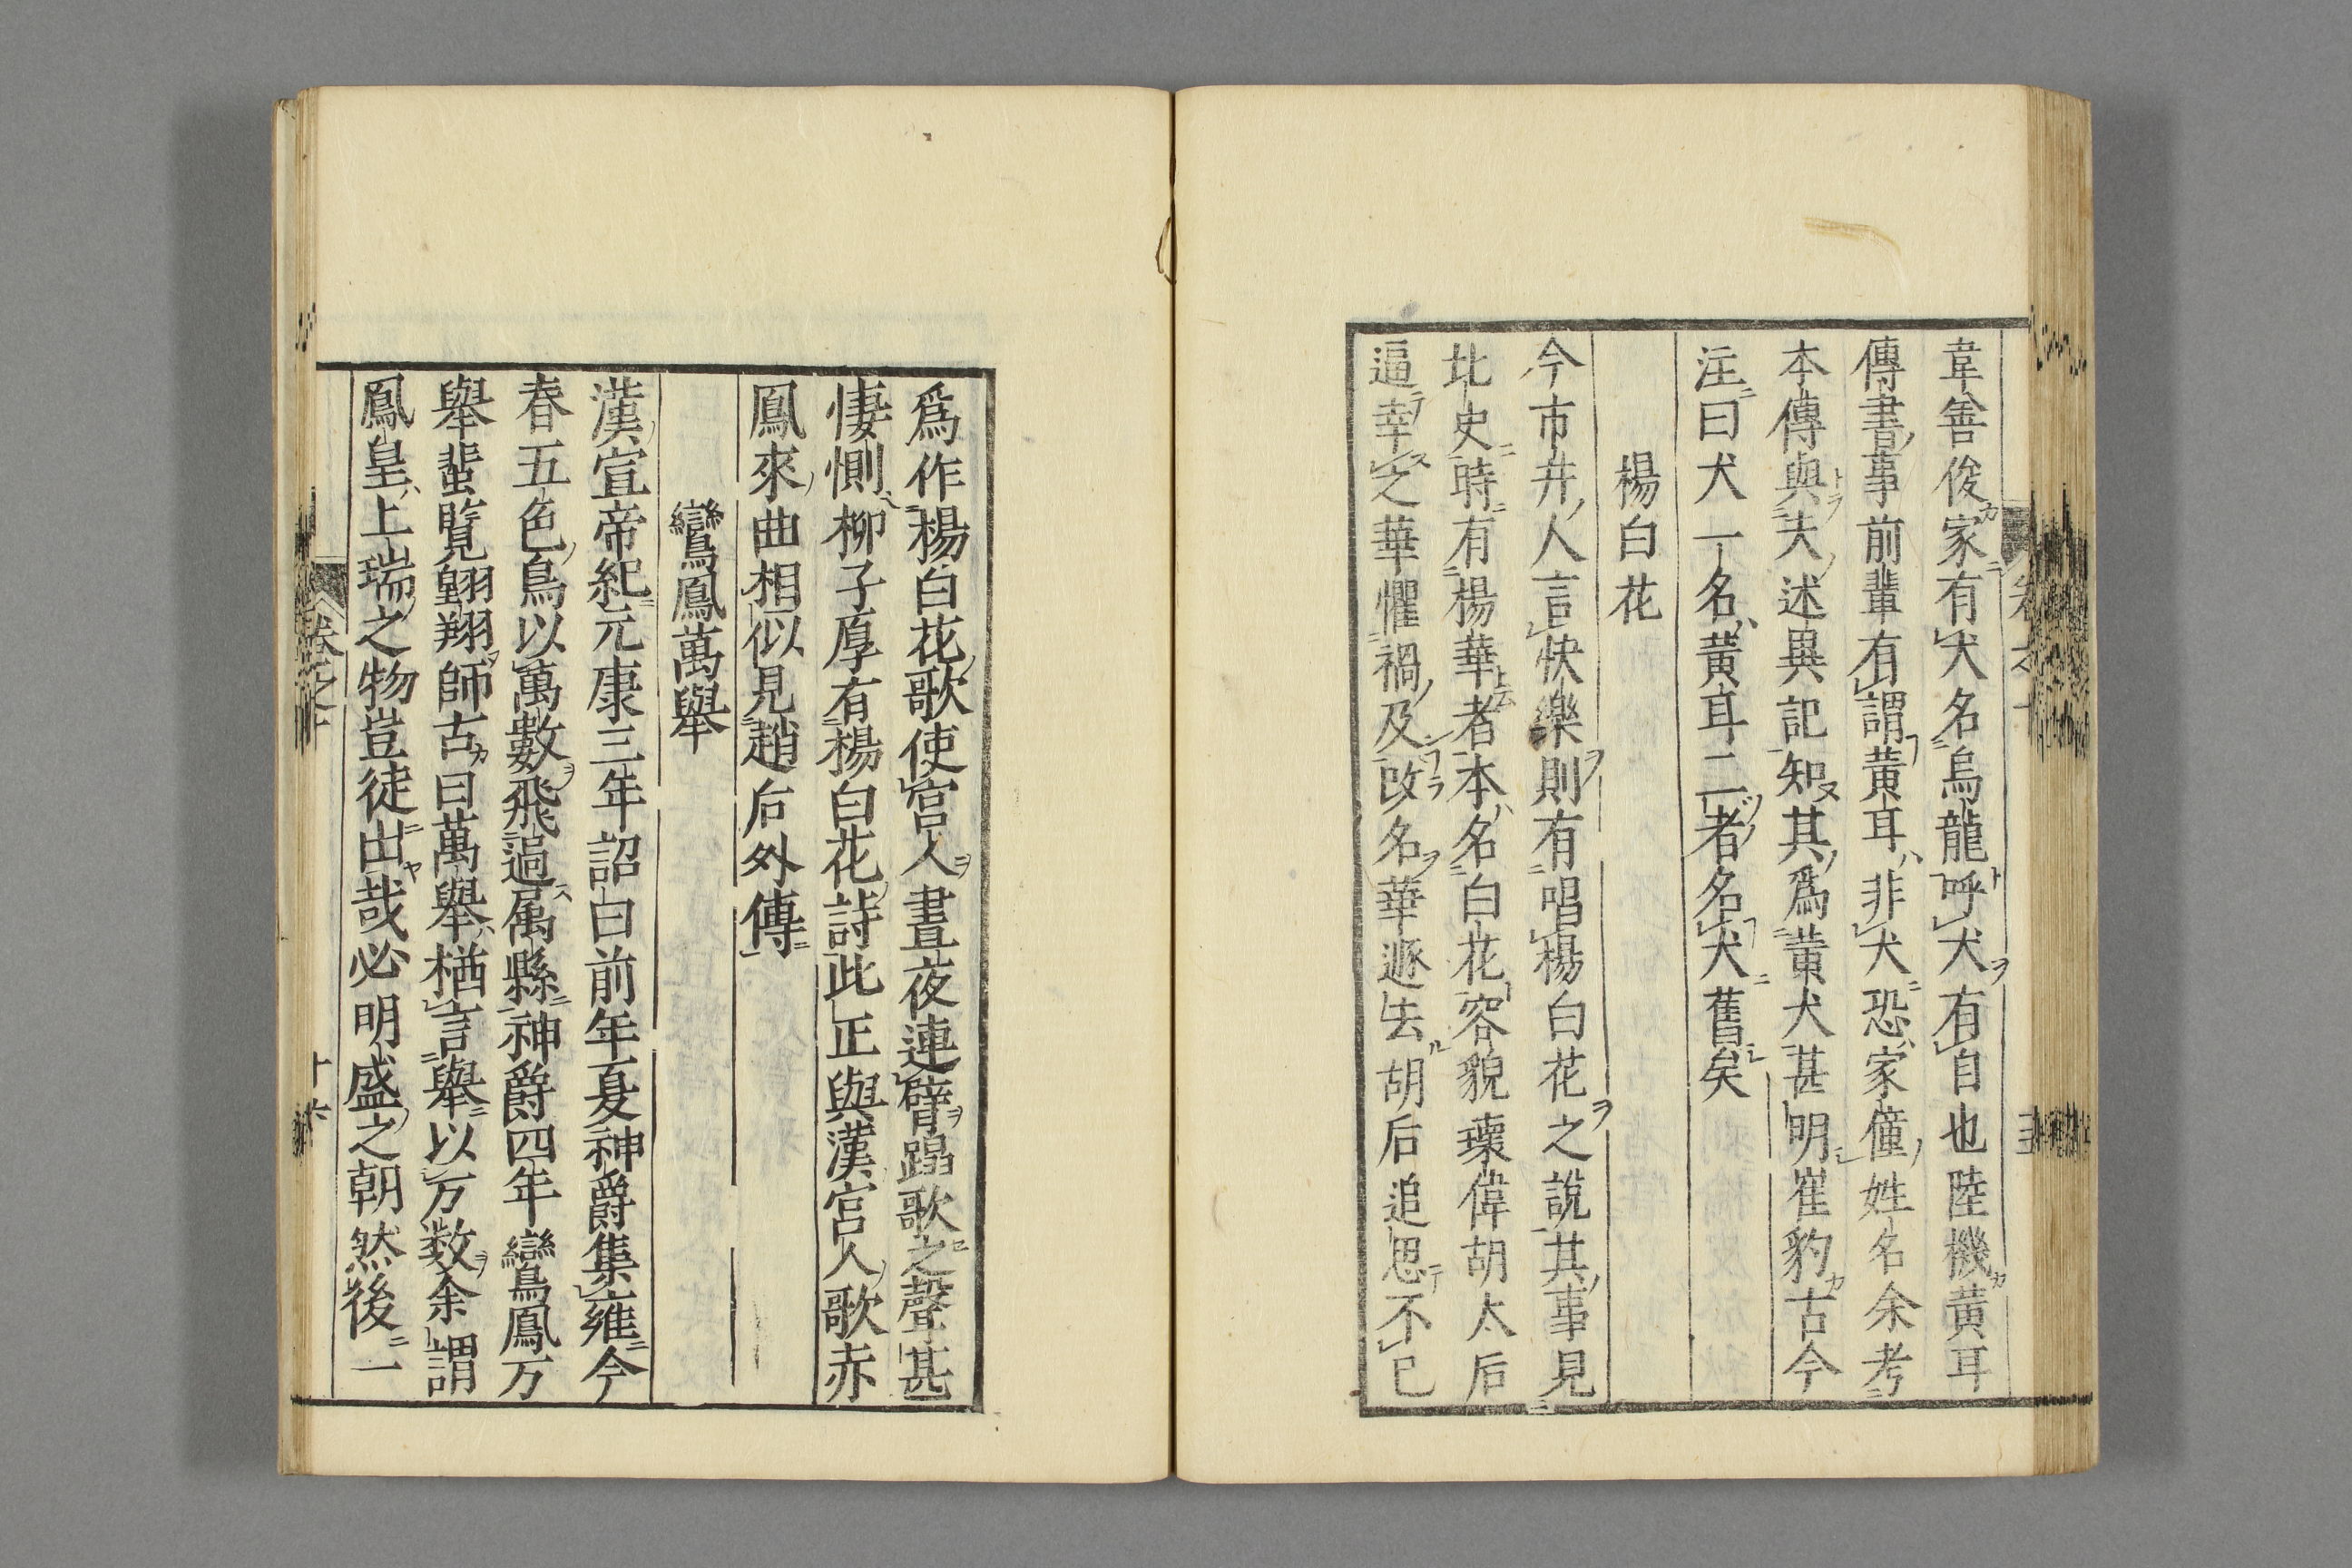 韋善俊家有犬名烏龍呼犬有自也陸機黃耳
傳書事前輩有謂黃耳非犬恐家僮姓名余考
本傳與夫述異記知其爲黃犬甚明崔豹古今
注曰犬一名黃耳二者名犬舊矣
楊白花
今市井人言快樂則有唱楊白花之說其事見
北史時有楊華者本名白花容貌瓌偉胡太后
逼幸之華懼禍及改名華遁去胡后追思不已
爲作楊白花歌使宮人晝夜連臂蹋歌之聲甚
悽惻柳子厚有楊白花詩此正與漢宮人歌赤
鳳來曲相似見趙后外傳
鸞鳳萬舉
漢宣帝紀元康三年詔曰前年夏神爵集雍今
春五色鳥以萬數飛過属縣神爵四年鸞鳳万
舉蜚覽翱翔師古曰萬舉楢言舉以万数余謂
鳳皇上瑞之物豈徒出哉必明盛之朝然後一
卷之十
十六